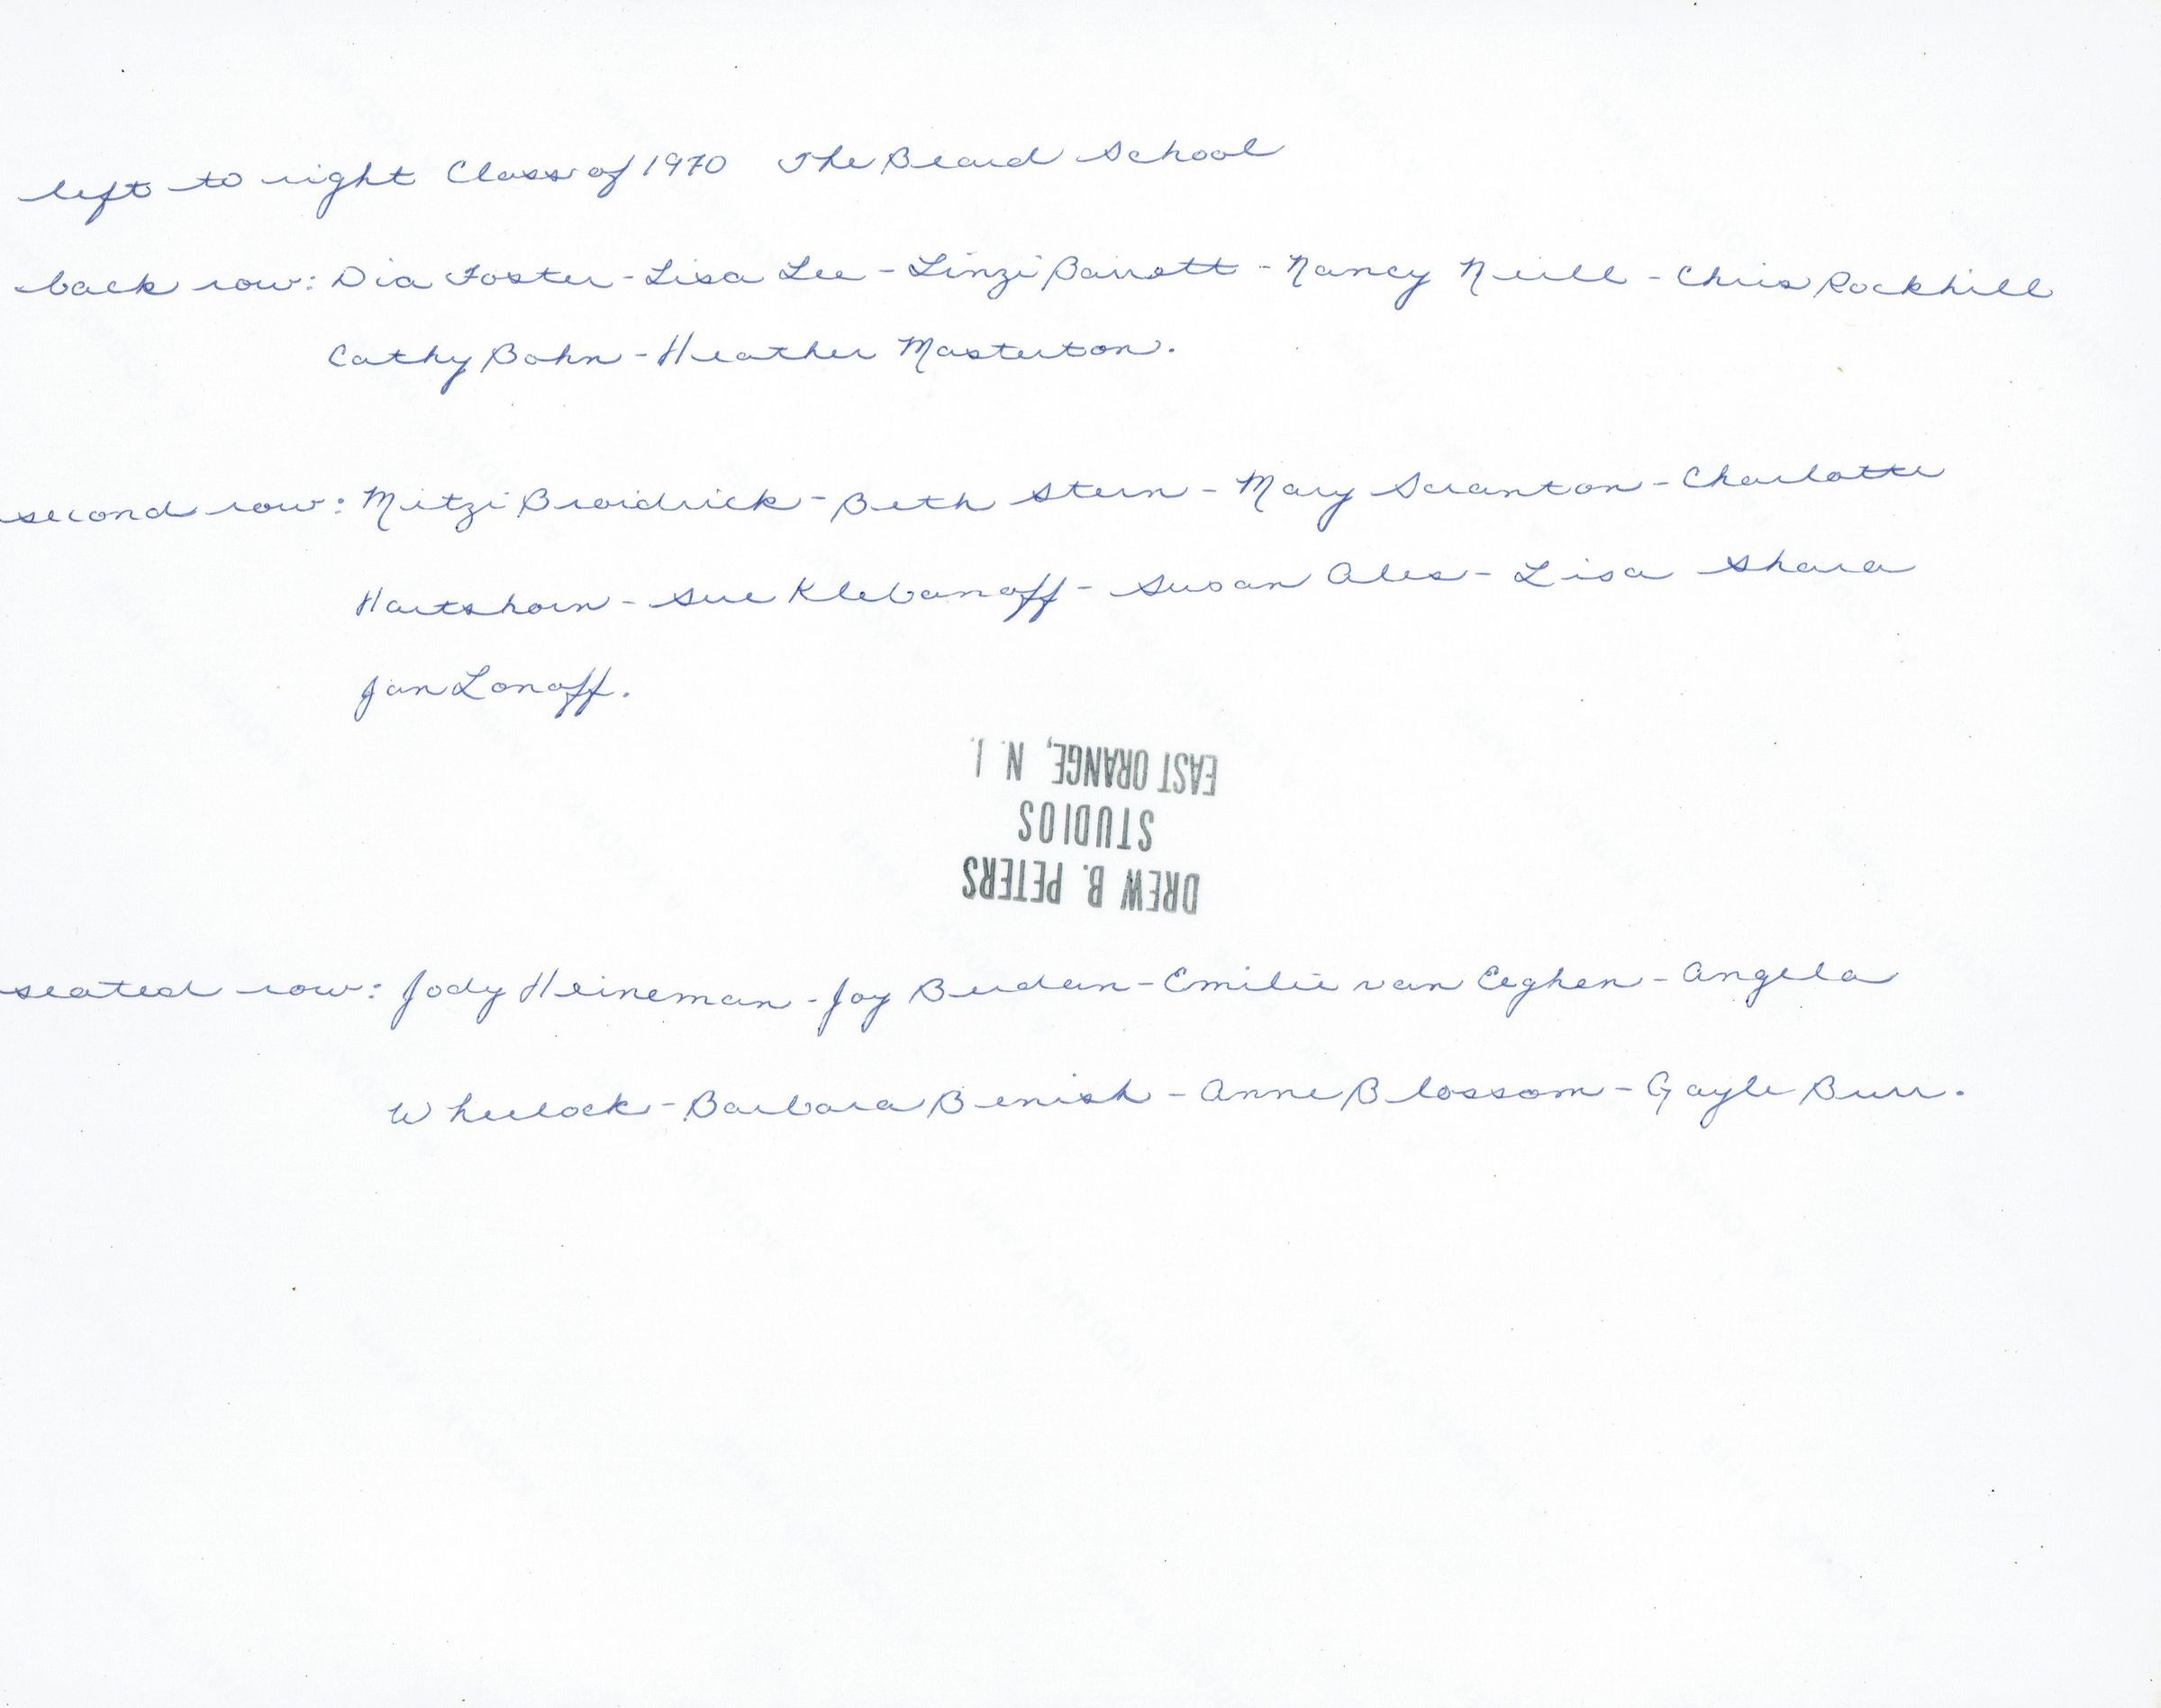 left to right Class of 1970 The Beard School
back row: Dia Foster - Lisa Lee - Linzi Barrett - Nancy Neill - Chris Rockhill
Cathy Bohn - Heather Masterton.
second row: Mitzi Broidrick - Beth Stern - Mary Scranton - Charlotte
Hartshorn - Sue Klebanoff - Susan Ales - Lisa Shara
Jan Lonoff.
DREW B. PETERS
STUDIOS
EAST ORANGE, N. J.
seated row: Jody Heineman - Joy Berdan - Emilie van Eeghen - Angela
Wheelock - Barbara Benish - Anne Blossom - Gayle Burr.